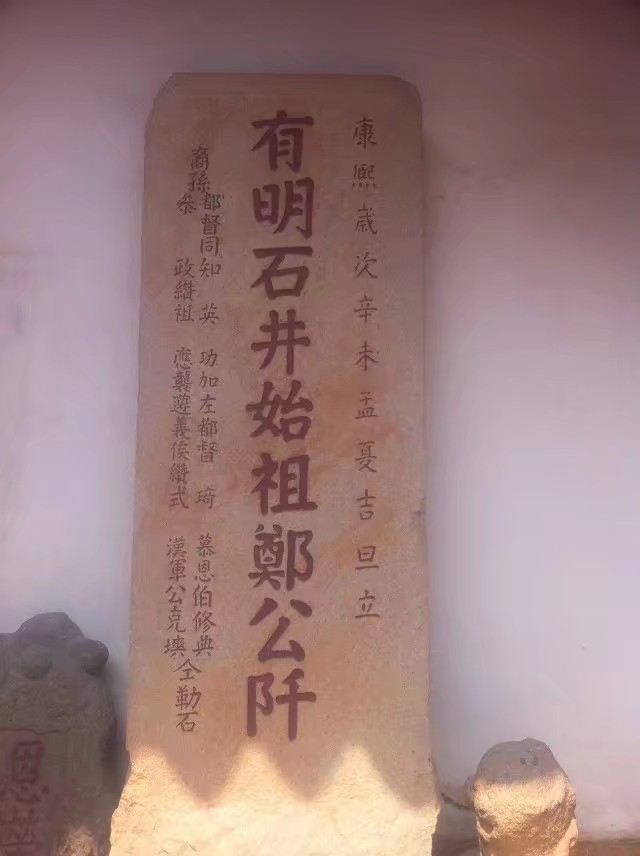 康熙歲次辛未孟夏吉旦立
有明石井始祖鄭公阡
裔孫
都督同知 英 功加左都督 琦 慕恩伯修典
叅 政纘祖 應襲遵義侯纘式 漢軍公克塽
仝勒石
恩